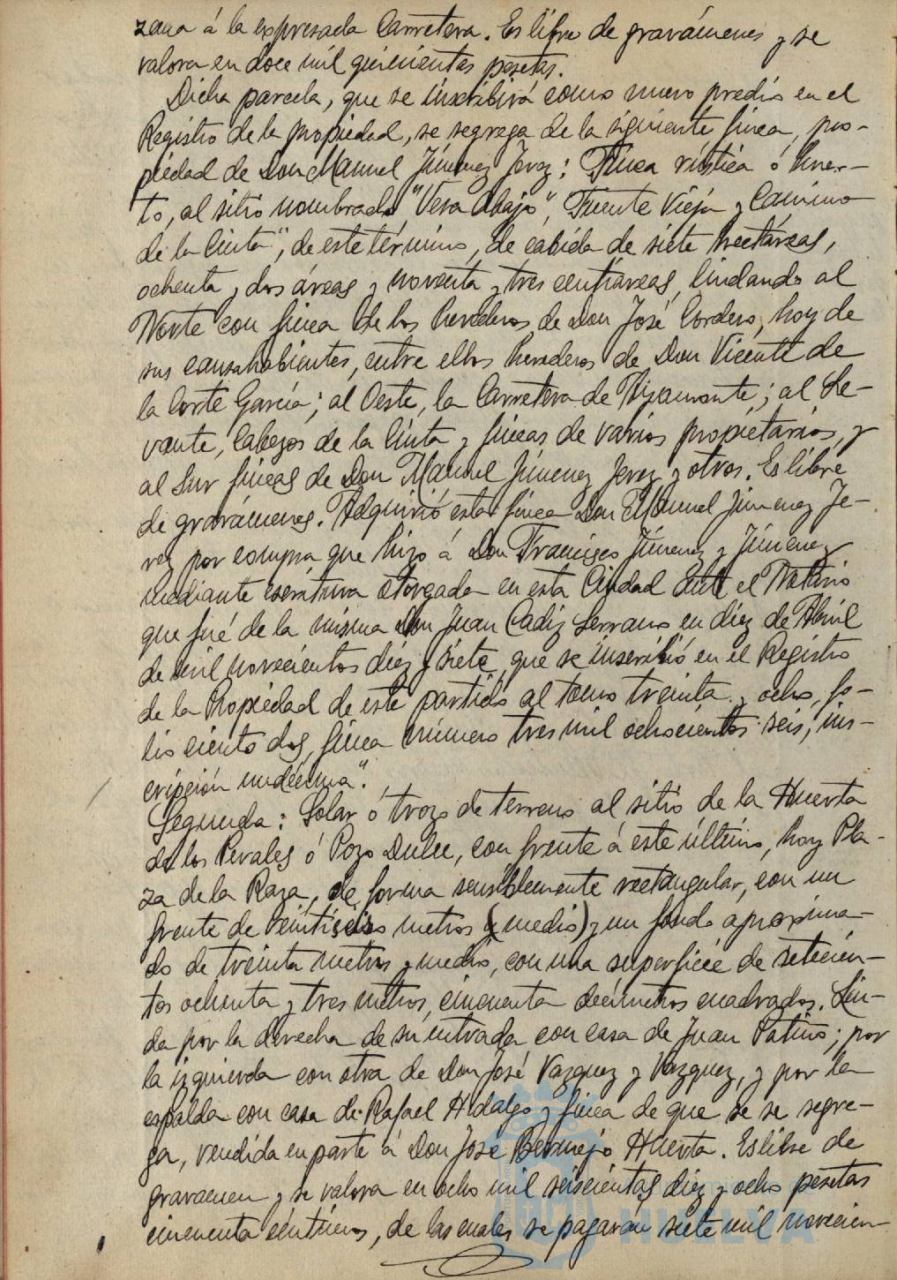 zana á la expresada Carretera. Es libre de gravámenes y se
valora en doce mil quinientas pesetas.
Dicha parcela, que se inscribirá como nuevo predio en el
Registro de la propiedad, se segrega de la siguiente finca, pro-
piedad de Don Manuel Jimenez Jerez: "Finca rústica ó huer-
to, al sitio nombrado "Vera Abajo", Fuente Vieja y Camino
de la Cinta", de este término, de cabida de siete hectáreas,
ochenta y dos áreas y noventa y tres centiáreas, lindando al
Norte con finca de los herederos de Don José Cordero, hoy de
sus causahabientes, entre ellos herederos de Don Vicente de
la Corte García; al Oeste, la Carretera de Ayamonte; al Le-
vante, Cabezos de la Cinta y fincas de varios propietarios, y
al Sur fincas de Don Manuel Jimenez Jerez y otros. Es libre
de gravámenes. Adquirió esta finca Don Manuel Jimenez Je-
rez por compra que hizo á Don Francisco Jimenez y Jimenez
mediante escritura otorgada en esta Ciudad ante el Notario
que fué de la misma Don Juan Cadiz Serrano en diez de Abril
de mil novecientos diez y siete, que se inscribió en el Registro
de la Propiedad de este partido al tomo treinta y ocho, fo-
lio ciento dos, finca número tres mil ochocientos seis, ins-
cripción undécima".
Segunda: Solar ó trozo de terreno al sitio de la Huerta
de los Perales ó Pozo Dulce, con frente á este último, hoy Pla-
za de la Raza, de forma sensiblemente rectangular, con un
frente de veintiseis metros (y medio) y un fondo aproxima-
do de treinta metros y medio, con una superficie de setecien-
tos ochenta y tres metros, cincuenta decímetros cuadrados. Lin-
da por la derecha de su entrada con casa de Juan Patiño; por
la izquierda con otra de Don José Vazquez y Vazquez, y por la
espalda con casa de Rafael Hidalgo y finca de que se se segre-
ga, vendida en parte á Don José Bermejo Huerta. Es libre de
gravamen y se valora en ocho mil seiscientas diez y ocho pesetas
cincuenta céntimos, de las cuales se pagarán siete mil novecien-
HUELVA